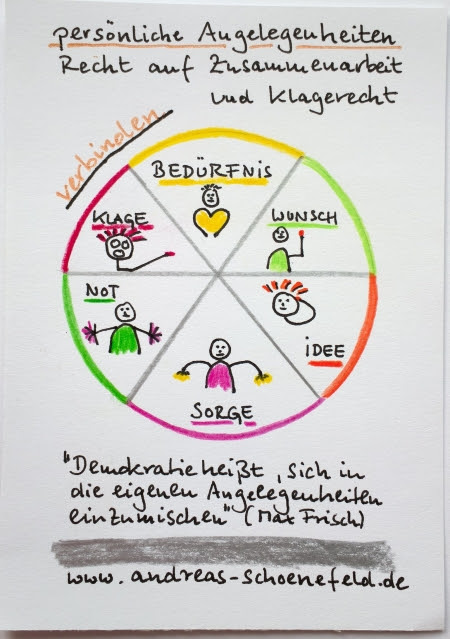 persönliche Angelegenheiten
Recht auf Zusammenarbeit
und Klagerecht
verbinden
BEDÜRFNIS
KLAGE
WUNSCH
NOT
IDEE
SORGE
"Demokratie heißt, sich in
die eigenen Angelegenheiten
einzumischen" (Max Frisch)
www.andreas-schoenefeld.de